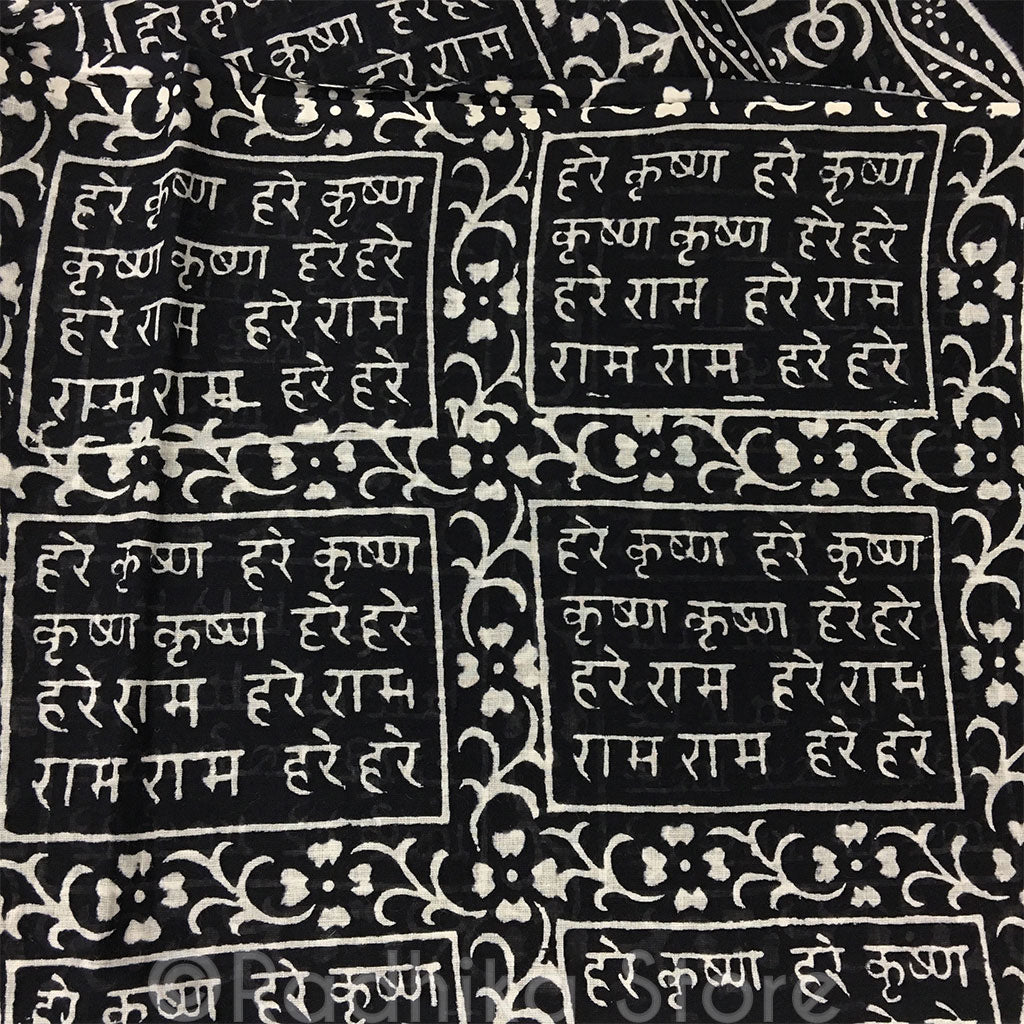 हरे कृष्ण
हरे राम
हरे कृष्ण हरे कृष्ण
कृष्ण कृष्ण हरे हरे
हरे राम हरे राम
राम राम हरे हरे
हरे कृष्ण हरे कृष्ण
कृष्ण कृष्ण हरे हरे
हरे राम हरे राम
राम राम हरे हरे
हरे कृष्ण हरे कृष्ण
कृष्ण कृष्ण हरे हरे
हरे राम हरे राम
राम राम हरे हरे
हरे कृष्ण हरे कृष्ण
कृष्ण कृष्ण हरे हरे
हरे राम हरे राम
राम राम हरे हरे
हरे कृष्ण हरे कृष्ण
हरे कृष्ण हरे कृष्ण
©Radhika Store